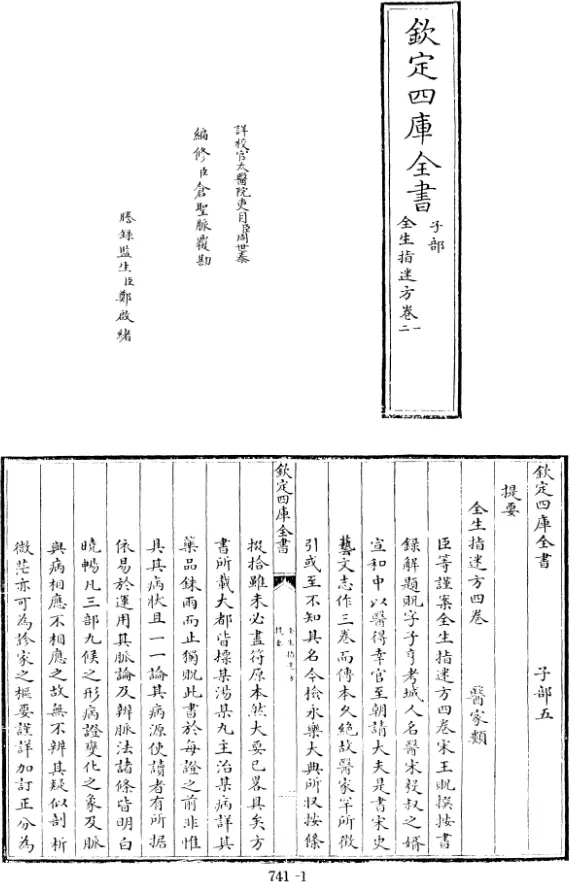 欽定四庫全書
子部
全生指迷方卷一
二
詳校官太醫院吏目臣周世泰
編修臣倉聖脈覆勘
謄錄監生臣鄭啟緒
欽定四庫全書 子部五
提要
全生指迷方四卷 醫家類
臣等謹案全生指迷方四卷宋王貺撰按書
錄解題貺字子亨考城人名醫宋毅叔之婿
宣和中以醫得幸官至朝請大夫是書宋史
藝文志作三卷而傳本久絶故醫家罕所徵
引或至不知其名今檢永樂大典所収按條
欽定四庫全書
全生指迷方
提要
掇拾雖未必盡符原本然大要已畧具矣方
書所載大都皆標某湯某丸主治某病詳其
藥品銖兩而止獨貺此書於每證之前非惟
具其病狀且一一論其病源使讀者有所據
依易於運用其脈論及辨脈法諸條皆明白
曉暢凡三部九候之形病證變化之象及脈
與病相應不相應之故無不辨其疑似剖析
微茫亦可為診家之樞要謹詳加訂正分為
741-1